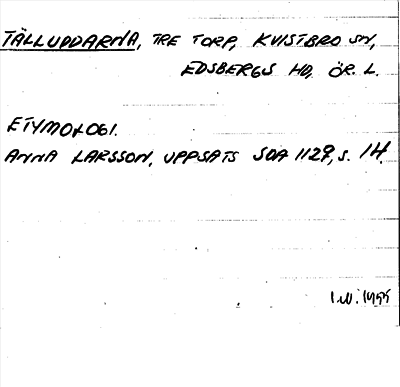 TÄLLUDDARNA, TRE TORP, KVISTBRO SN,
EDSBERGS HD, ÖR. L.
ETYMOLOGI.
ANNA LARSSON, UPPSATS SOA 1129, S. 14.